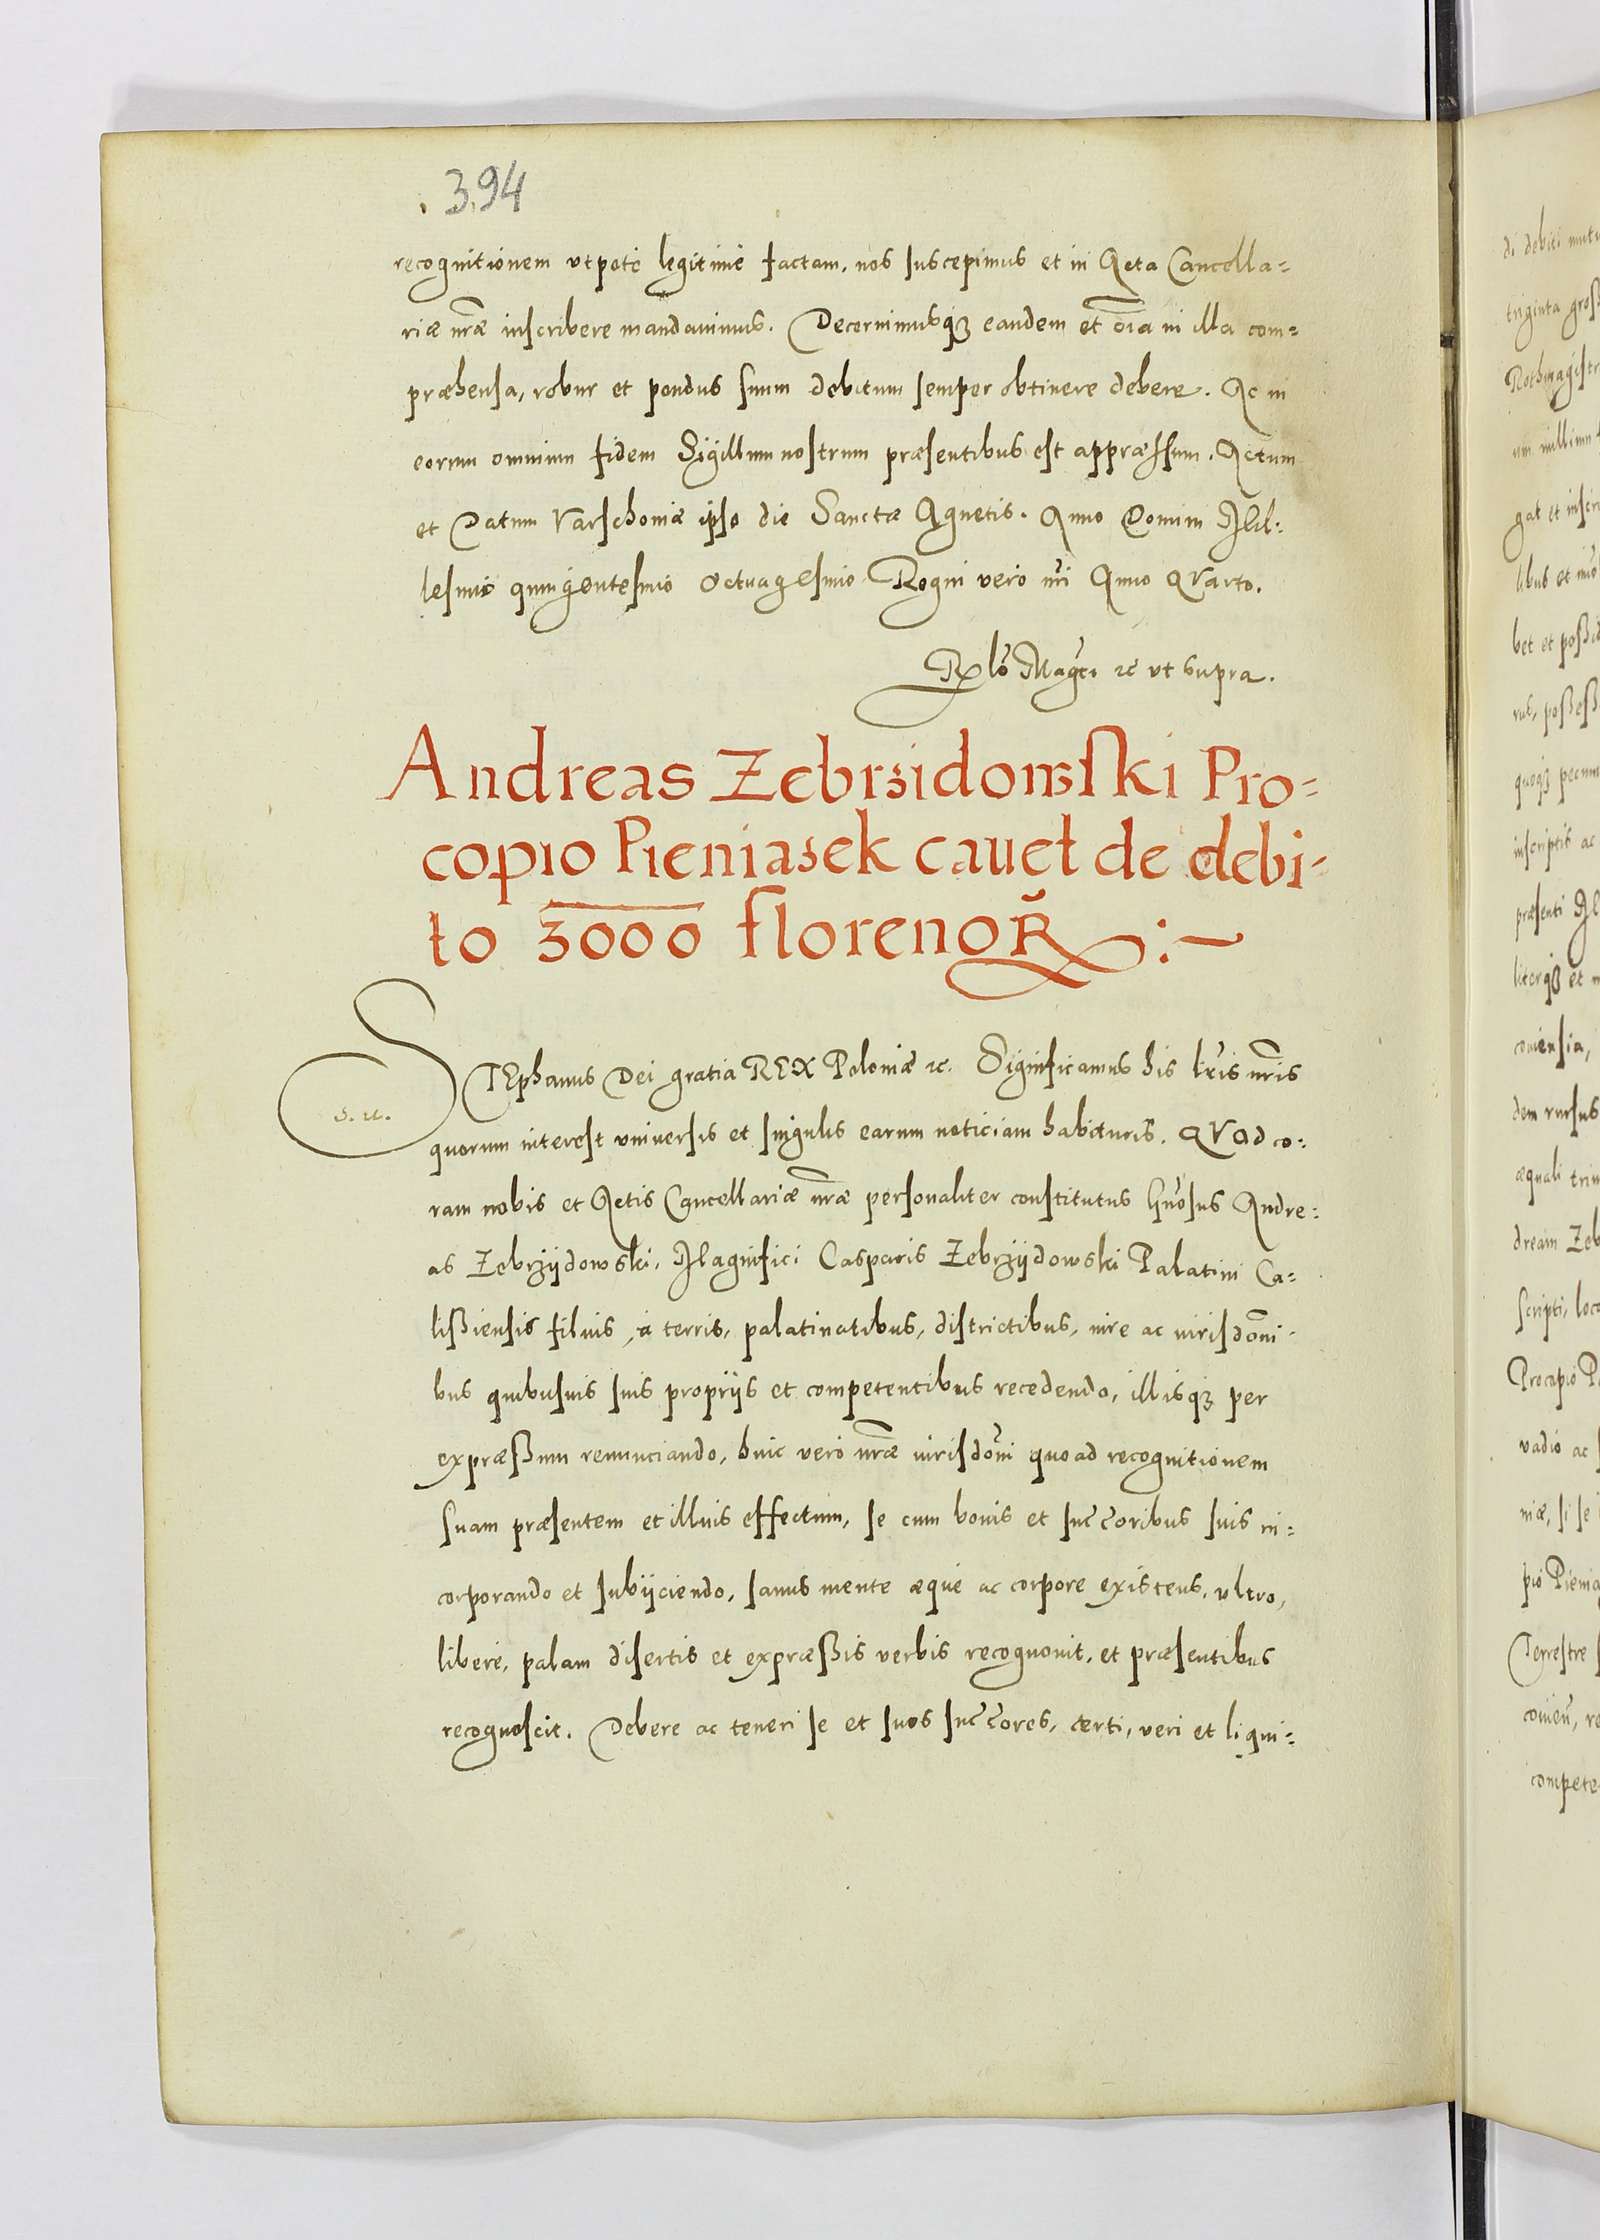 394
recognitionem utpote legitimè factam, nos suscepimus et in Acta Cancella=
riæ nr̃æ inscribere mandauimus. Decernimusqꝫ eandem et oĩa in illa com=
præhensa, robur et pondus suum debitum semper obtinere debere. Ac in
eorum omnium fidem Sigillum nostrum præsentibus est appræssum. Actum
et Datum Varschouiæ ipso die Sanctæ Agnetis. Anno Domini Mil=
lesimo quingentesimo octuagesimo Regni vero nr̃i Anno QVarto.
Rel̃o Magci ꝛc ut supra.
Andreas Zebrzidowski Pro=
copio Pieniasek cauet de debi=
to 3000 florenoꝝ :~
STEphanus Dei gratia REX Poloniæ ꝛc. Significamus his lr̃is nr̃is
S. R.
quorum interest vniuersis et singulis earum noticiam habituris. QVod co=
ram nobis et Actis Cancellariæ nr̃æ personaliter constitutus Gñosus Andre=
as Zebrzydowski, Magnifici Casparis Zebrzydowski Palatini Ca=
lißiensis filius, à terris, palatinatibus, districtibus, iure ac iurisdõni=
bus quibusuis suis proprijs et competentibus recedendo, illisqꝫ per
expræßum renunciando, huic verò nr̃æ iurisdõni quoad recognitionem
suam præsentem et illius effectum, se cum bonis et succ̃oribus suis in=
corporando et subijciendo, sanus mente æquè ac corpore existens, vltro,
liberè, palam disertis et expræßis verbis recognouit, et præsentibus
recognoscit. Debere ac teneri se et suos succ̃ores, certi, veri et liqui=
di debiti mutu
triginta groß
Rothmagistr
gat et inscri
libus et
bet et poßid
poßeß
quoqꝫ pecun
inscriptis ac
præsenti
literqꝫ et
couiensia,
dem rursus
æquali triu
dream Zeb
scripti, loco
Procopio P
vadio ac
niæ, si se
pio Pienia
Terrestre
compete